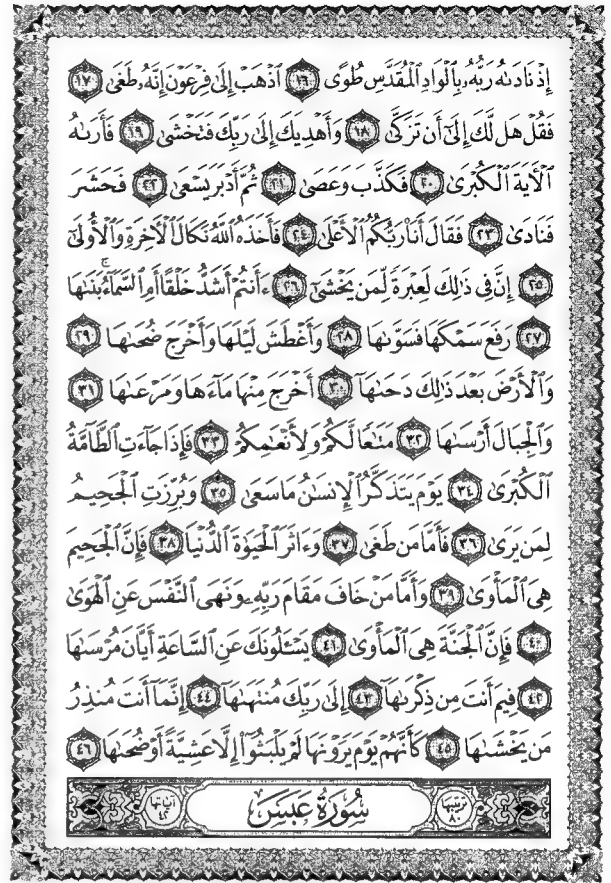 إِذْ نَادَىٰهُ رَبُّهُۥ بِٱلْوَادِ ٱلْمُقَدَّسِ طُوًى ١٦ ٱذْهَبْ إِلَىٰ فِرْعَوْنَ إِنَّهُۥ طَغَىٰ ١٧
فَقُلْ هَل لَّكَ إِلَىٰٓ أَن تَزَكَّىٰ ١٨ وَأَهْدِيَكَ إِلَىٰ رَبِّكَ فَتَخْشَىٰ ١٩ فَأَرَىٰهُ
ٱلْأَيَةَ ٱلْكُبْرَىٰ ٢٠ فَكَذَّبَ وَعَصَىٰ ٢١ ثُمَّ أَدْبَرَ يَسْعَىٰ ٢٢ فَحَشَرَ
فَنَادَىٰ ٢٣ فَقَالَ أَنَا۠ رَبُّكُمُ ٱلْأَعْلَىٰ ٢٤ فَأَخَذَهُ ٱللَّهُ نَكَالَ ٱلْأَخِرَةِ وَٱلْأُولَىٰٓ
٢٥ إِنَّ فِى ذَٰلِكَ لَعِبْرَةً لِّمَن يَخْشَىٰٓ ٢٦ ءَأَنتُمْ أَشَدُّ خَلْقًا أَمِ ٱلسَّمَآءُ ۚ بَنَىٰهَا
٢٧ رَفَعَ سَمْكَهَا فَسَوَّىٰهَا ٢٨ وَأَغْطَشَ لَيْلَهَا وَأَخْرَجَ ضُحَىٰهَا ٢٩
وَٱلْأَرْضَ بَعْدَ ذَٰلِكَ دَحَىٰهَآ ٣٠ أَخْرَجَ مِنْهَا مَآءَهَا وَمَرْعَىٰهَا ٣١
وَٱلْجِبَالَ أَرْسَىٰهَا ٣٢ مَتَٰعًا لَّكُمْ وَلِأَنْعَٰمِكُمْ ٣٣ فَإِذَا جَآءَتِ ٱلطَّآمَّةُ
ٱلْكُبْرَىٰ ٣٤ يَوْمَ يَتَذَكَّرُ ٱلْإِنسَٰنُ مَا سَعَىٰ ٣٥ وَبُرِّزَتِ ٱلْجَحِيمُ
لِمَن يَرَىٰ ٣٦ فَأَمَّا مَن طَغَىٰ ٣٧ وَءَاثَرَ ٱلْحَيَوٰةَ ٱلدُّنْيَا ٣٨ فَإِنَّ ٱلْجَحِيمَ
هِىَ ٱلْمَأْوَىٰ ٣٩ وَأَمَّا مَنْ خَافَ مَقَامَ رَبِّهِۦ وَنَهَى ٱلنَّفْسَ عَنِ ٱلْهَوَىٰ
٤٠ فَإِنَّ ٱلْجَنَّةَ هِىَ ٱلْمَأْوَىٰ ٤١ يَسْـَٔلُونَكَ عَنِ ٱلسَّاعَةِ أَيَّانَ مُرْسَىٰهَا
٤٢ فِيمَ أَنتَ مِن ذِكْرَىٰهَآ ٤٣ إِلَىٰ رَبِّكَ مُنتَهَىٰهَآ ٤٤ إِنَّمَآ أَنتَ مُنذِرُ
مَن يَخْشَىٰهَا ٤٥ كَأَنَّهُمْ يَوْمَ يَرَوْنَهَا لَمْ يَلْبَثُوٓا۟ إِلَّا عَشِيَّةً أَوْ ضُحَىٰهَا ٤٦
ترتيبها ٨٠ سُورَةُ عَبَسَ آياتها ٤٢